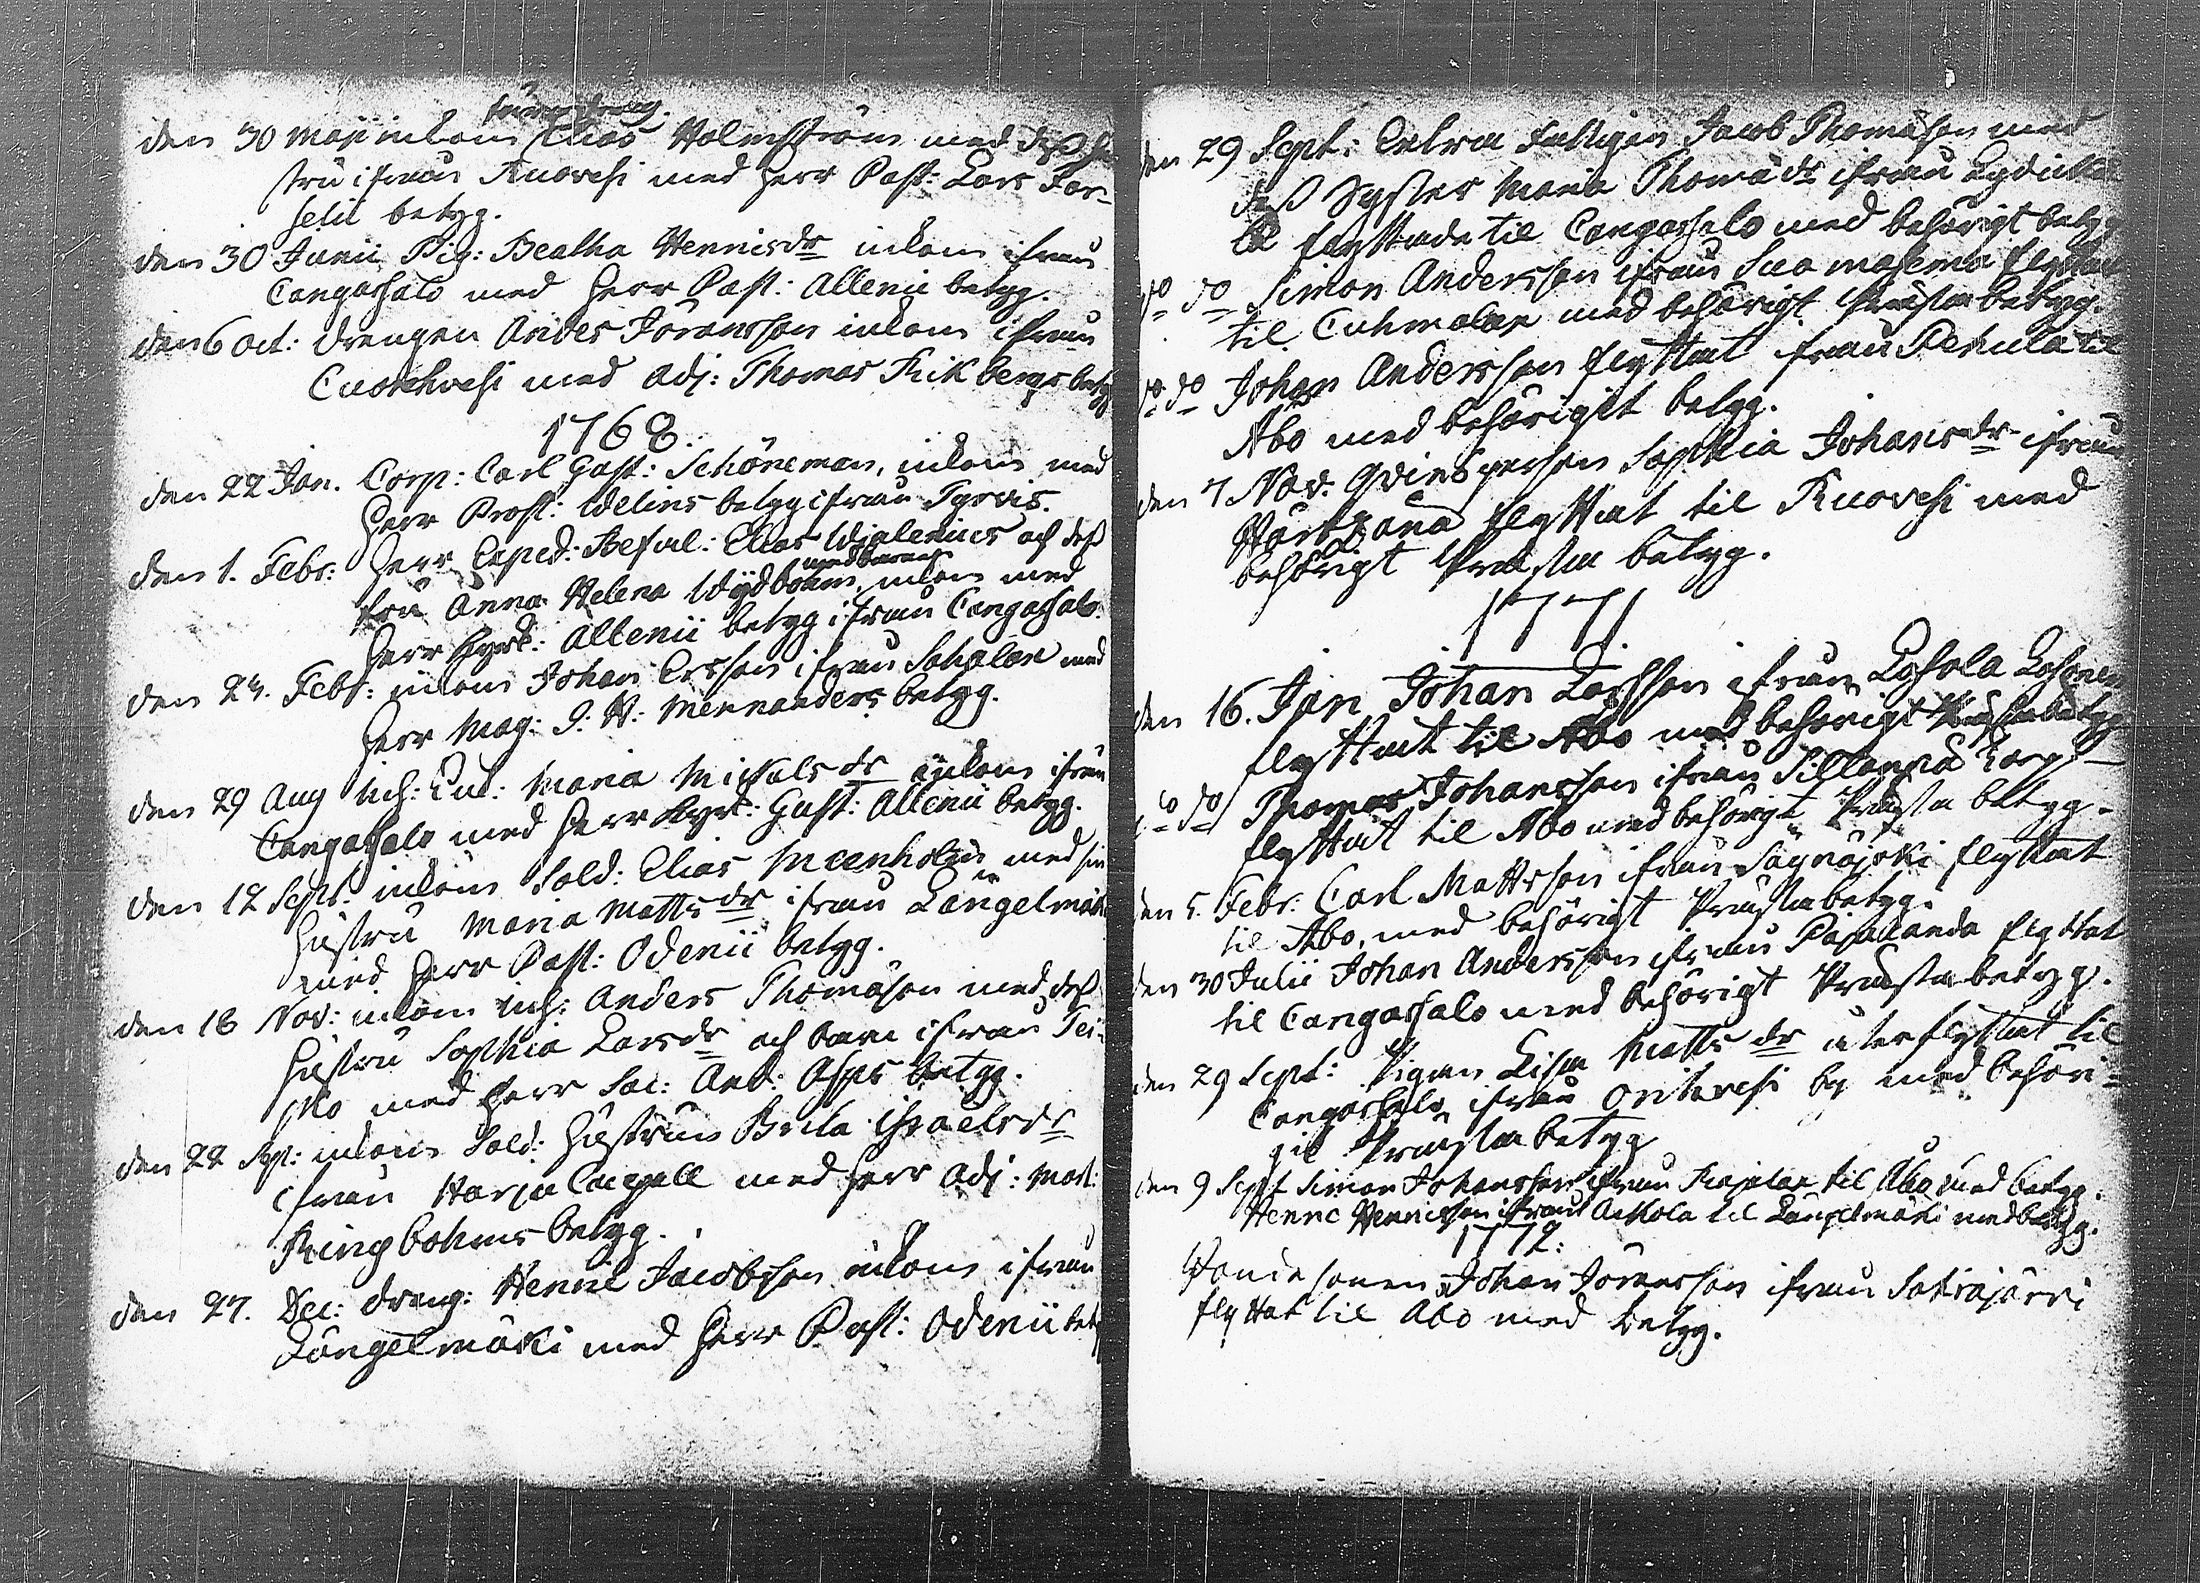 den 30 Maji inkom Elias Holmström med dess hu-
stru ifrån Ruovesi med Herr Past: Lars For-
selii betyg.
den 30 Junii Pig: Beatha Hennisdr inkom ifrån
Cangasalo med Herr Past: Allenii betyg.
den 6 Oct: drengen Anders Jöransson inkom ifrån
med Adj: Thomas Frikbergs betyg
1768.
den 22 Jan. Corp: Carl Gust: Schöneman, inkom med
Herr Prost: Idelins betyg ifrån Tyrvis.
den 1. Febr: Herr Exped: Befal: Elias och dess
medbaren
fru Anna Helena inkom med
Herr Kyrk: Allenii betyg ifrån Cangasalo.
den 24. Febr: inkom Johan Ersson ifrån Sahalax med
Herr Mag: J: H: Mennanders betyg.
den 29 Aug Inh: Maria Mickelsdr inkom ifrån
Cangasalo med Herr Kyrk: Gust: Allenii betyg.
den 12 Sept: inkom Sold: Elias med sin
Hustru Maria Mattsdr ifrån Längelmäki
med Herr Past: Odenii betyg.
den 16 Nov: inkom inh: Anders Thomasson med dess
Hustru Sophia Larsdr och barn ifrån Tei-
sko med Herr Sac: And: Asps betyg.
den 22 Sept: inkom Sold: Hustrun Brita Israelsdr
ifrån Harju Capell med Herr Adj: Mart:
Ringbohms betyg.
den 27. Dec: dreng: Henric Jacobsson inkom ifrån
Längelmäki med Herr Past: Odenii bet
den 29 Sept: Fattigen Jacob Thomasson med
dess Syster Maria Thomædr ifrån
flyttade til Cangasalo med behörigt betyg
do do Simon Andersson ifrån flyttat
til Cuhmalax med behörigt Prästa betyg.
do do Johan Andersson flyttat ifrån Pekula til
Åbo med behörigit betyg.
den 7 Nov. Qvinspersen Sophia Johansdr ifrån
flyttat til Ruovesi med
behörigt Prästa betyg.
1771
den 16. Jan Johan Larsson ifrån
flyttat til Åbo med behörigt Prästa betyg
do do Thomas Johansson ifrån
flyttat til Åbo med behörigt Prästa betyg.
den 5. Febr: Carl Mattsson ifrån Säynäjoki flyttat
til Åbo, med behörigt Prästa betyg.
den 30 Julii Johan Andersson ifrån Pajulanda flyttat
til Cangasalo med behörigt Prästa betyg.
den 29 Sept: Pigan Lisa Mattsdr återflyttat til
Cangasalo ifrån Orivesi by med behöri-
git Prästa betyg
den 9 Sept Simon Johansson ifrån til Åbo med betyg.
Henric Henricsson ifrån til Längelmäki med betyg.
1772:
Bondesonen Johan Jöransson ifrån Satrajärvi
flyttat til Åbo med betyg.